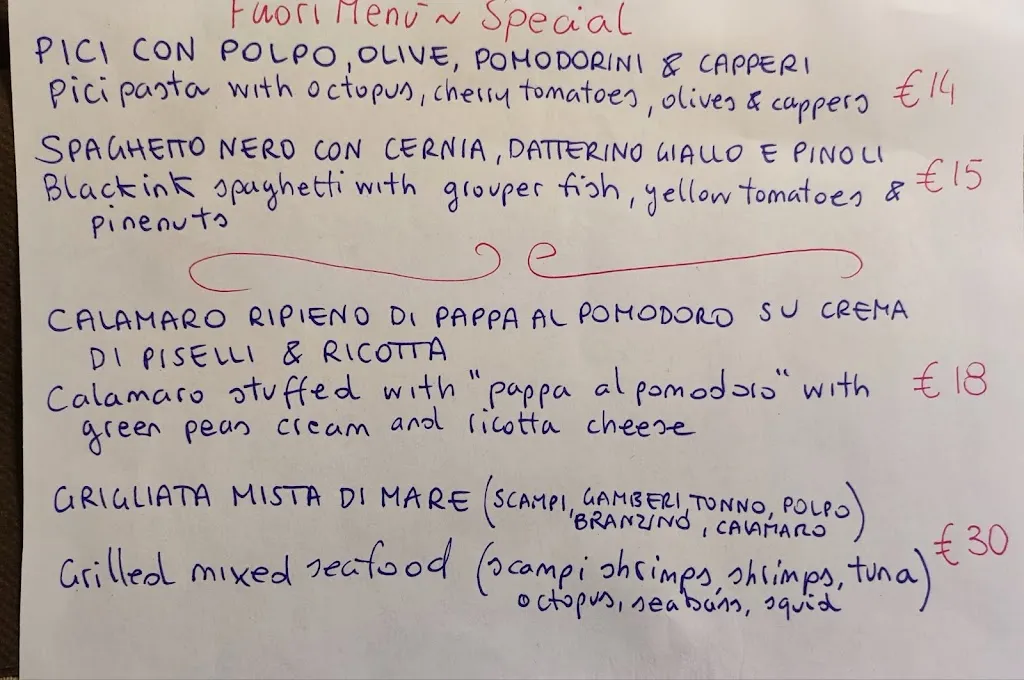 Fuori Menù ~ Special
PICI CON POLPO, OLIVE, POMODORINI & CAPPERI
Pici pasta with octopus, cherry tomatoes, olives & cappers €14
SPAGHETTO NERO CON CERNIA, DATTERINO GIALLO E PINOLI
Black ink spaghetti with grouper fish, yellow tomatoes & €15
pinenuts
CALAMARO RIPIENO DI PAPPA AL POMODORO SU CREMA
DI PISELLI & RICOTTA
Calamaro stuffed with "pappa al pomodoro" with €18
green peas cream and ricotta cheese
GRIGLIATA MISTA DI MARE (SCAMPI, GAMBERI, TONNO, POLPO
BRANZINO, CALAMARO)
Grilled mixed seafood (scampi shrimps, shrimps, tuna) €30
octopus, seabass, squid